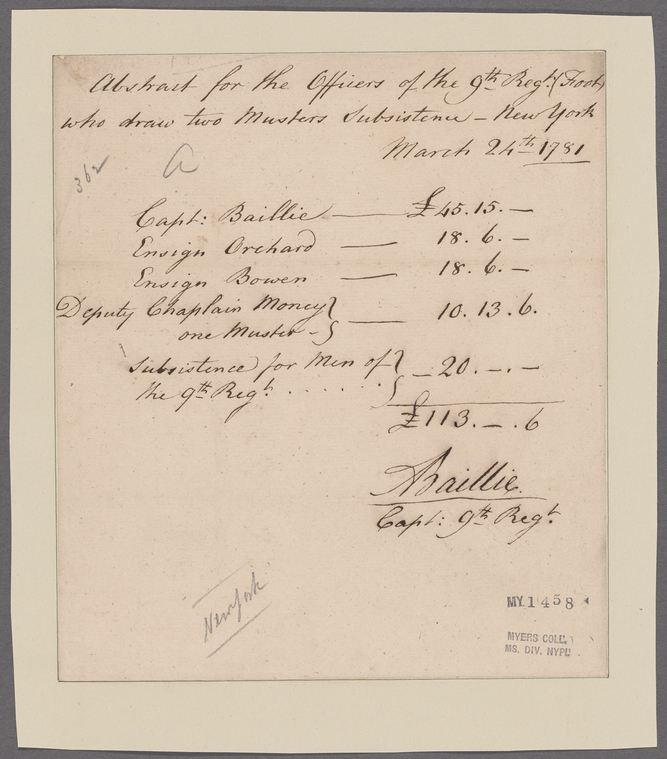 Abstract for the Officers of the 9th Regt. (Foot)
who draw two Musters Subsistence – New York
March 24th 1781
362
a
Capt: Baillie — £45.15.—
Ensign Orchard — 18.6.—
Ensign Bowen — 18.6.—
Deputy Chaplain Money } — 10.13.6.
one Muster – }
Subsistence for Men of } – 20.—.—
the 9th Regt. . . . . . . }
£113.—.6
ABaillie
Capt: 9th Regt.
New York
MY.1458
MYERS COLL.
MS. DIV. NYPL